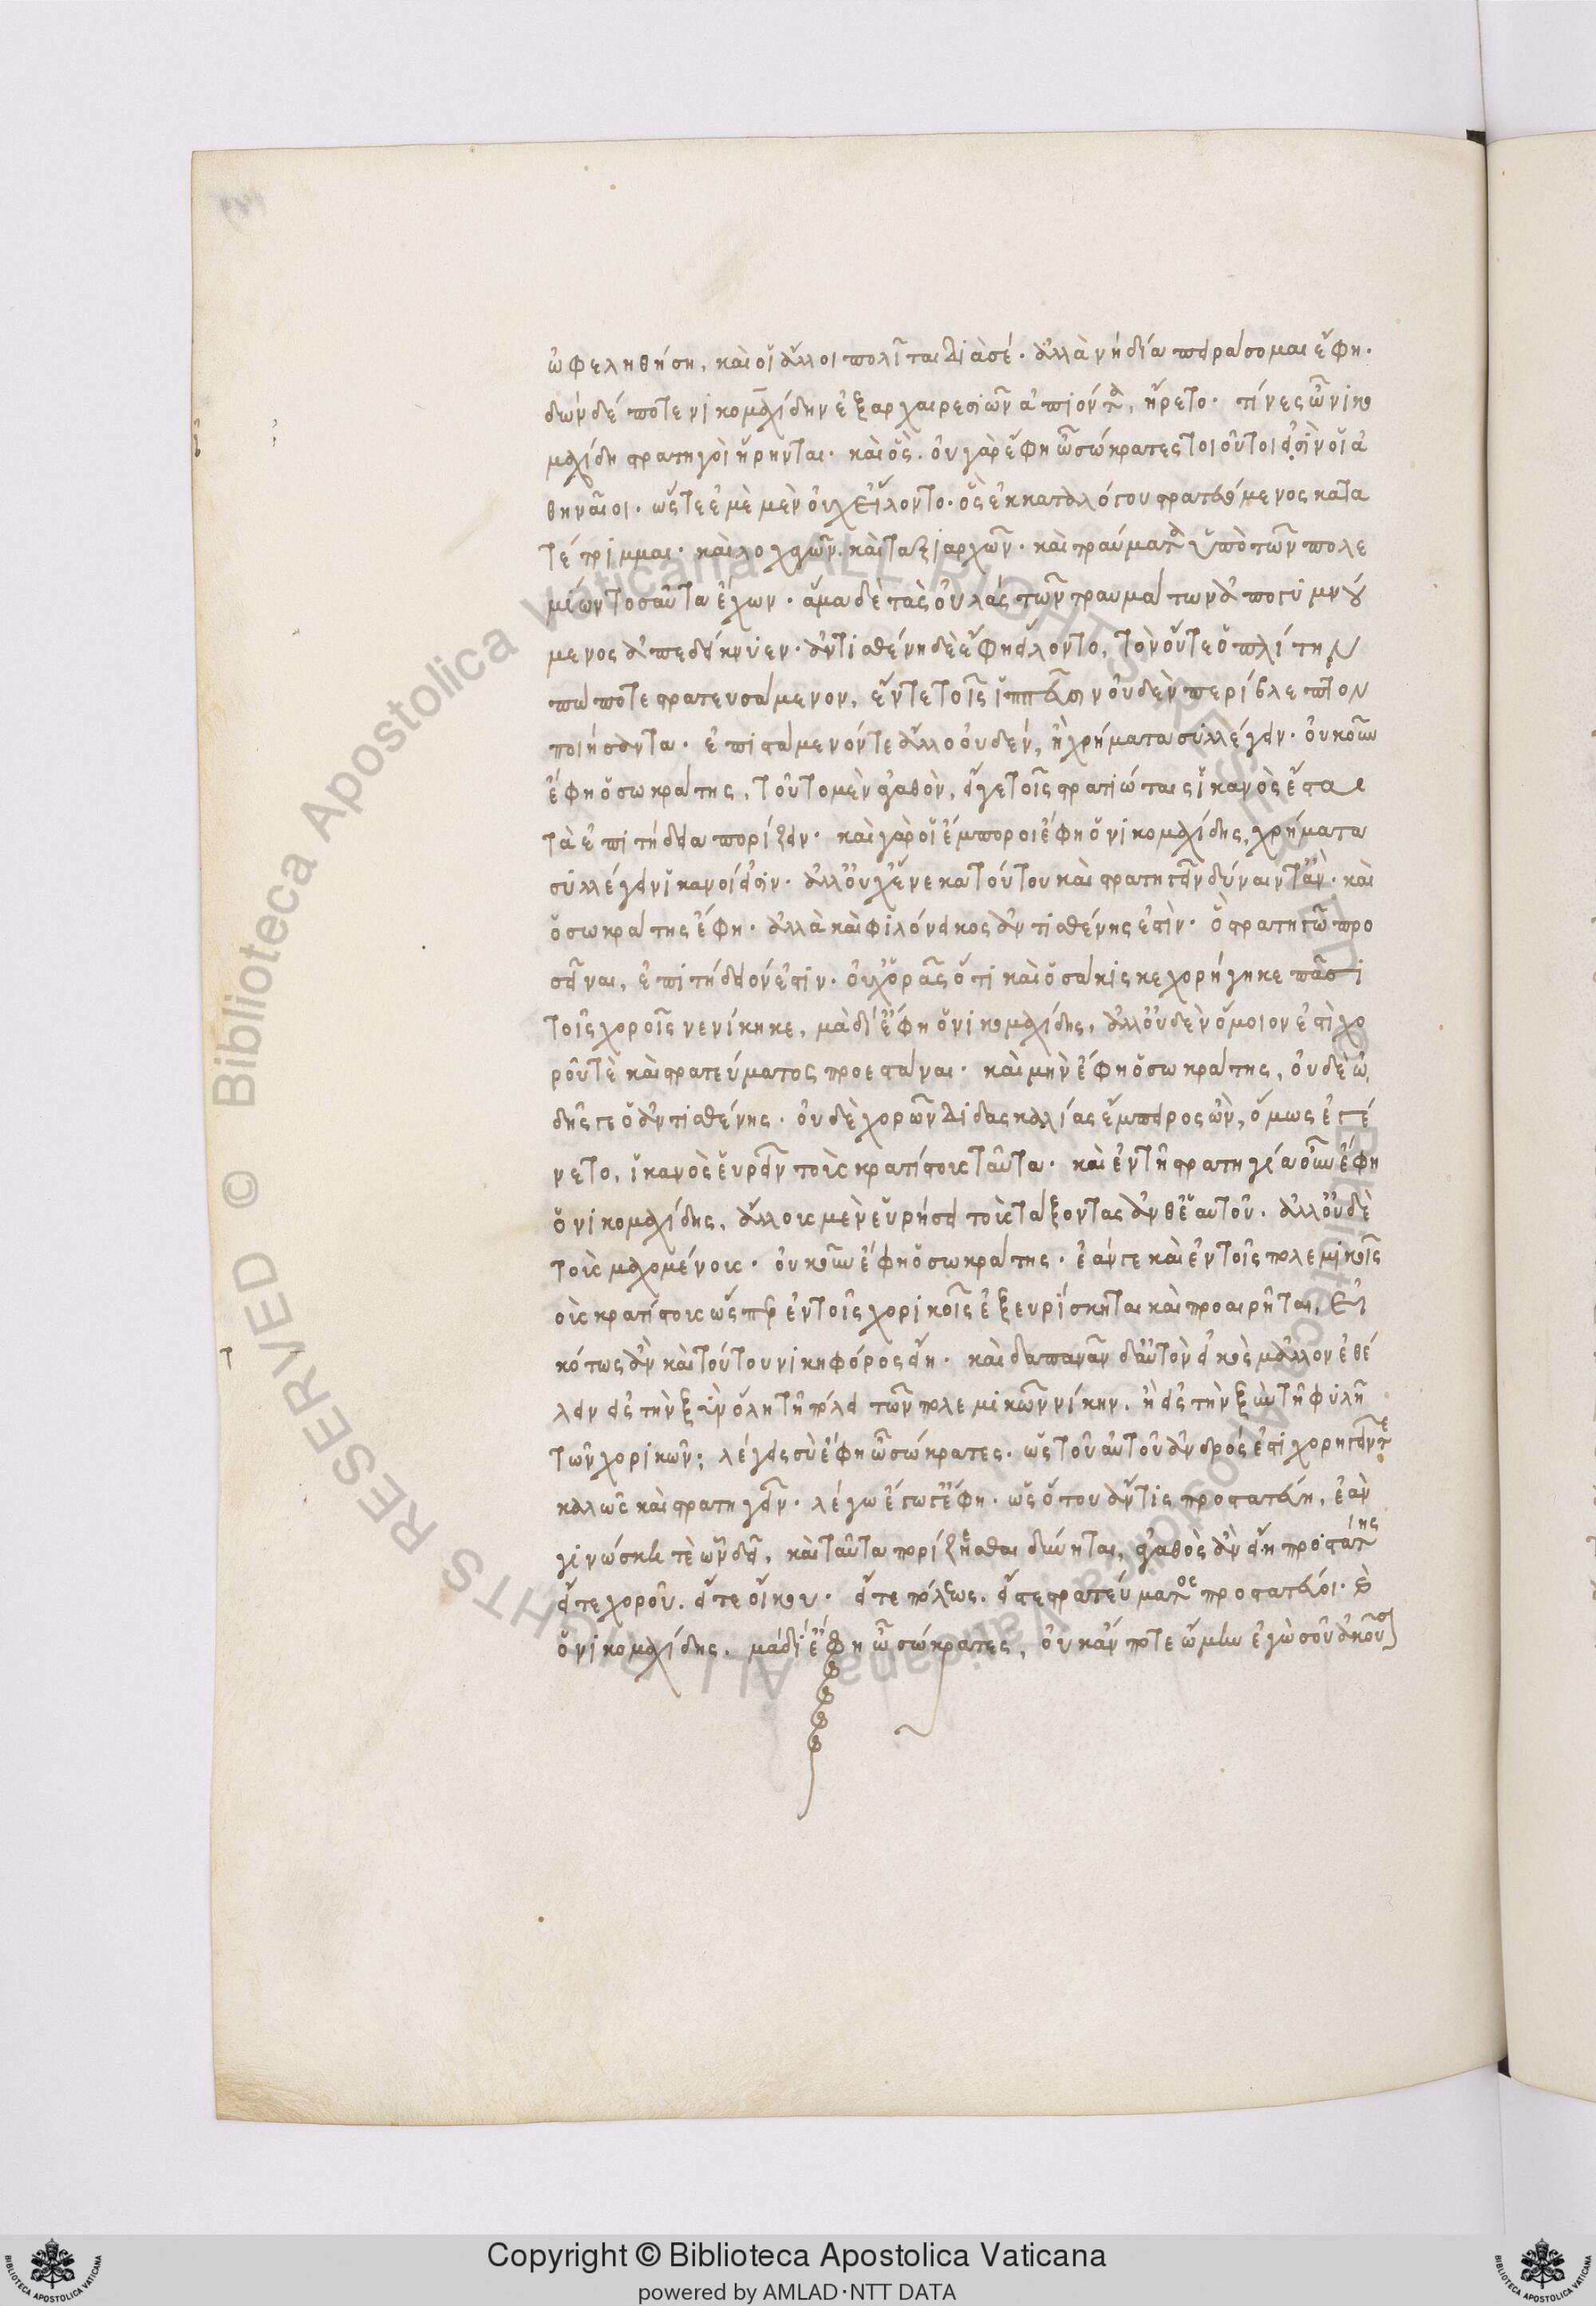 ὠφεληθήση, καὶ οἱ ἄλλοι πολῖται διὰ σέ. ἀλλὰ νὴ δία πειράσομαι ἔφη.
δών δέ ποτε νικομαχίδην ἐξ ἀρχαιρεσιῶν ἀπιόντα, ἤρετο. τίνες ὦ νικο
μαχίδη στρατηγοὶ ἥρηνται. καὶ ὅς. οὐ γὰρ ἔφη ὦ σώκρατες τοιοῦτοι εἰσὶν οἱ ἀ
θηναῖοι. ὥστε ἐμὲ μὲν οὐχ εἵλοντο. ὃς ἐκ καταλόγου στρατευόμενος κατα
τέτριμμαι. καὶ λοχαγῶν. καὶ ταξιαρχῶν. καὶ τραύματα ὑπὸ τῶν πολε
μίων τοσαῦτα ἔχων. ἅμα δὲ τὰς οὐλὰς τῶν τραυμάτων ἀπογυμνού
μενος ἀπεδείκνυεν. ἀντισθένη δὲ ἔφη εἵλοντο, τὸν οὔτε ὁπλίτην
πώποτε στρατευσάμενον, ἔν τε τοῖς ἱππεῦσιν οὐδὲν περίβλεπτον
ποιήσαντα. ἐπιστάμενόν τε ἄλλο οὐδέν, ἢ χρήματα συλλέγειν. οὐκοῦν
ἔφη ὁ σωκράτης, τοῦτο μὲν ἀγαθὸν, εἴγε τοῖς στρατιώταις ἱκανὸς ἔσται
τὰ ἐπιτήδεια πορίζειν. καὶ γὰρ οἱ ἔμποροι ἔφη ὁ νικομαχίδης, χρήματα
συλλέγειν ἱκανοί εἰσιν. ἀλλ' οὐχ ἕνεκα τούτου καὶ στρατηγεῖν δύναιντ' ἄν. καὶ
ὁ σωκράτης ἔφη. ἀλλὰ καὶ φιλόνεικος ἀντισθένης ἐστὶν. ὃ στρατηγῷ προ
σεῖναι, ἐπιτήδειόν ἐστιν. οὐχ ὁρᾷς ὅτι καὶ ὁσάκις κεχορήγηκε πᾶσι
τοῖς χοροῖς νενίκηκε, μὰ δί' ἔφη ὁ νικομαχίδης, ἀλλ' οὐδὲν ὅμοιον ἐστὶ χο
ροῦ τὲ καὶ στρατεύματος προεστάναι. καὶ μὴν ἔφη ὁ σωκράτης, οὐδὲ ὠ
δῆς γε ὁ ἀντισθένης. οὐδὲ χορῶν διδασκαλίας ἔμπειρος ὢν, ὅμως ἐγέ
νετο, ἱκανὸς εὑρεῖν τοὺς κρατίστους ταῦτα. καὶ ἐν τῇ στρατηγίᾳ οὖν ἔφη
ὁ νικομαχίδης, ἄλλους μὲν εὑρήσει τοὺς τάξοντας ἀνθ' ἑαυτοῦ. ἄλλους δὲ
τοὺς μαχομένους. οὐκοῦν ἔφη ὁ σωκράτης. ἐάν γε καὶ ἐν τοῖς πολεμικοῖς
οὺς κρατίστους ὥσπερ ἐν τοῖς χορικοῖς ἐξευρίσκηται καὶ προαιρῆται, εἰ
κότως ἂν καὶ τούτου νικηφόρος εἴη. καὶ δαπανᾶν δ' αὐτὸν εἰκὸς μᾶλλον ἐθέ
λειν εἰς τὴν ξὺν ὅλῃ τῇ πόλει τῶν πολεμικῶν νίκην. ἢ εἰς τὴν ξὺν τῇ φυλῇ
τῶν χορικῶν; λέγεις σὺ ἔφη ὦ σώκρατες. ὡς τοῦ αὐτοῦ ἀνδρός ἐστι χορηγεῖν τε
καλῶς καὶ στρατηγεῖν. λέγω ἔγωγ' ἔφη. ὡς ὅτου ἄν τις προστατεύῃ, ἐὰν
γινώσκῃ τὲ ὧν δεῖ, καὶ ταῦτα πορίζεσθαι δύνηται, ἀγαθὸς ἂν εἴη προστάτης
εἴτε χοροῦ. εἴτε οἴκου. εἴτε πόλεως. εἴτε στρατεύματος προστατεύοι. καὶ
ὁ νικομαχίδης. μὰ δί' ἔφη ὦ σώκρατες, οὐκ ἄν ποτε ᾤμην ἐγὼ σοῦ ἀκοῦσαι